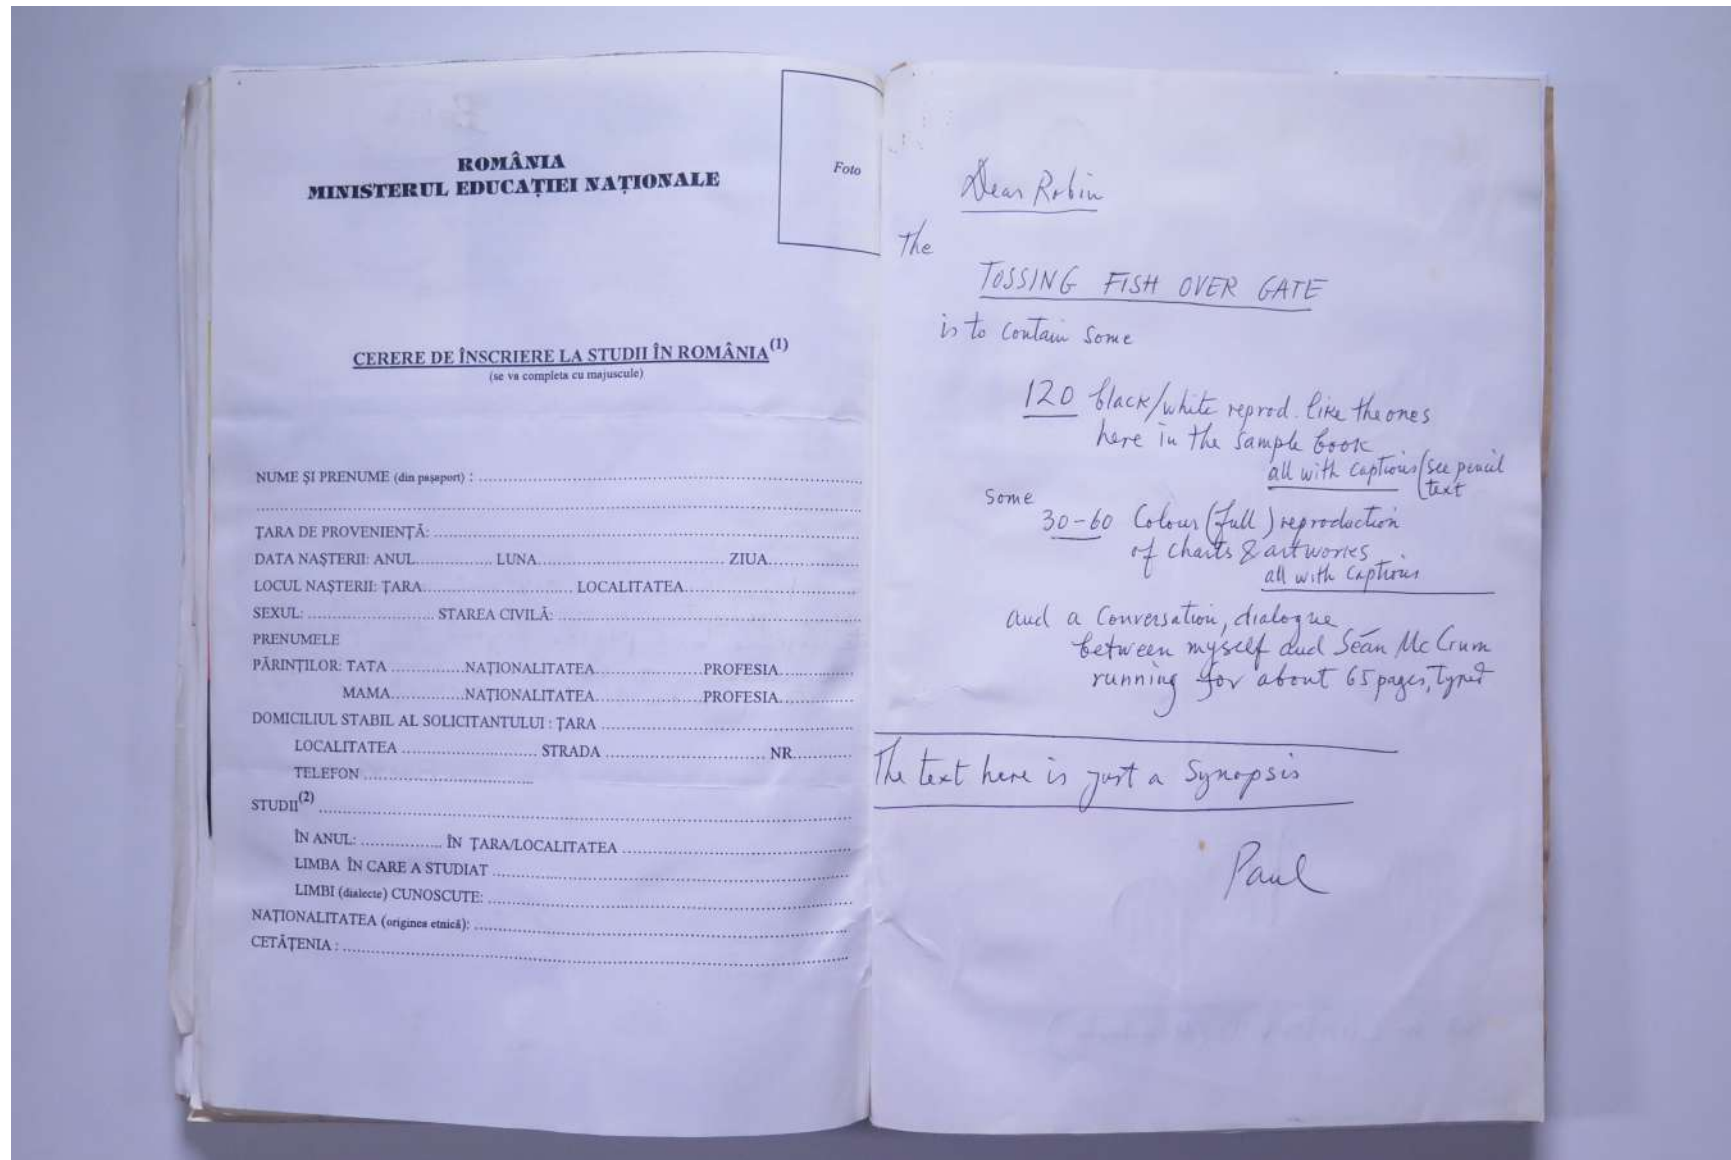 ROMÂNIA
MINISTERUL EDUCAȚIEI NAȚIONALE
Foto
CERERE DE ÎNSCRIERE LA STUDII ÎN ROMÂNIA(1)
(se va completa cu majuscule)
NUME ȘI PRENUME (din pașaport) : ....................
....................
ȚARA DE PROVENIENȚĂ: ....................
DATA NAȘTERII: ANUL.................... LUNA.................... ZIUA....................
LOCUL NAȘTERII: ȚARA.................... LOCALITATEA....................
SEXUL: .................... STAREA CIVILĂ: ....................
PRENUMELE
PĂRINȚILOR: TATA ....................NAȚIONALITATEA....................PROFESIA....................
MAMA....................NAȚIONALITATEA....................PROFESIA....................
DOMICILIUL STABIL AL SOLICITANTULUI : ȚARA ....................
LOCALITATEA .................... STRADA .................... NR....................
TELEFON ....................
STUDII(2) ....................
ÎN ANUL: .................... ÎN ȚARA/LOCALITATEA ....................
LIMBA ÎN CARE A STUDIAT ....................
LIMBI (dialecte) CUNOSCUTE: ....................
NAȚIONALITATEA (originea etnică): ....................
CETĂȚENIA : ....................
Dear Robin
The
TOSSING FISH OVER GATE
is to contain some
120 black/white reprod. like the ones
here in the sample book
all with captions (see pencil
text
some
30-60 Colour (full) reproduction
of charts & artworks
all with captions
and a conversation, dialogue
between myself and Séan McCrum
running for about 65 pages, typed
The text here is just a Synopsis
Paul